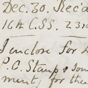 Dec. 30. Rec'd
16th C.S.S. 23r
I enclose for
P.O. Stamps
ment, for the